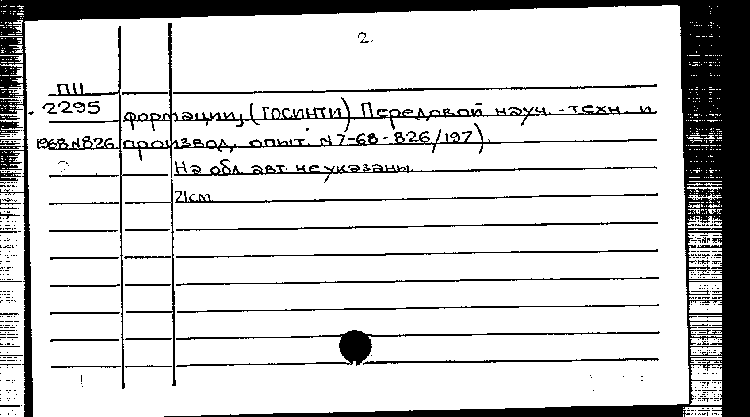 2.
ПЦ
2295 формации, (ГОСИНТИ) Передовой науч. - техн. и
1968 N826 производ, опыт. N7-68-826/197).
На обл. авт. не указаны.
21см